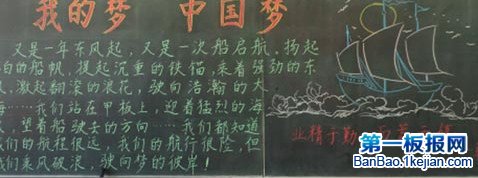 我的梦 中国梦
又是一年东风起，又是一次船启航，扬起
白的船帆，提起沉重的铁锚，乘着强劲的东
，激起翻滚的浪花，驶向浩瀚的大
……我们站在甲板上，迎着猛烈的海
，望着船驶去的方向……我们都知道
们的航程很远，我们的航行很险，但
们乘风破浪，驶向梦的彼岸！
业精于勤
第一板报网
BanBao.1kejian.com